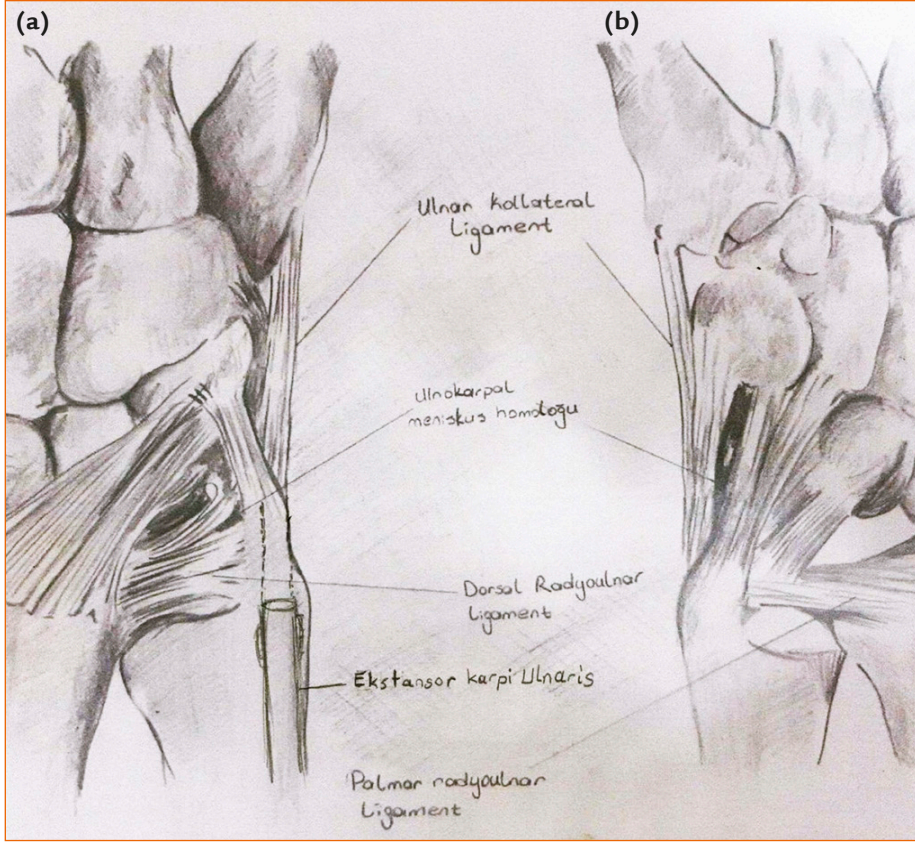 (a)
(b)
Ulnar Kollateral
Ligament
Ulnokarpal
meniskus homoloğu
Dorsal Radyoulnar
Ligament
Ekstansor karpi Ulnaris
Palmar radyoulnar
Ligament